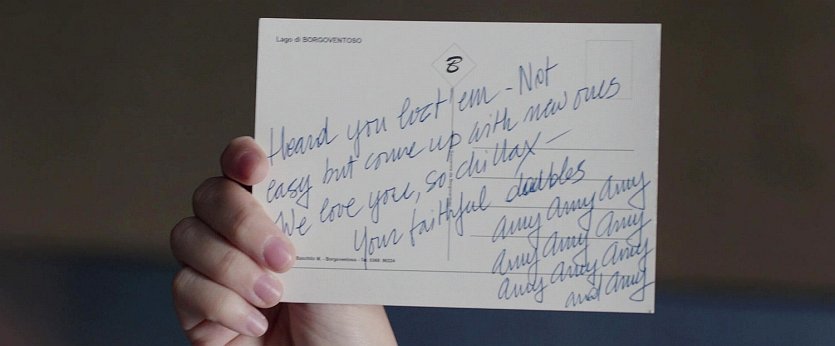 Lago di BORGOVENTOSO
B
Heard you lost 'em - Not
easy but come up with new ones
We love you, so chillax -
Your faithful doubles
Amy Amy Amy
Amy Amy Amy
Amy Amy Amy
and Amy
Borgoventoso